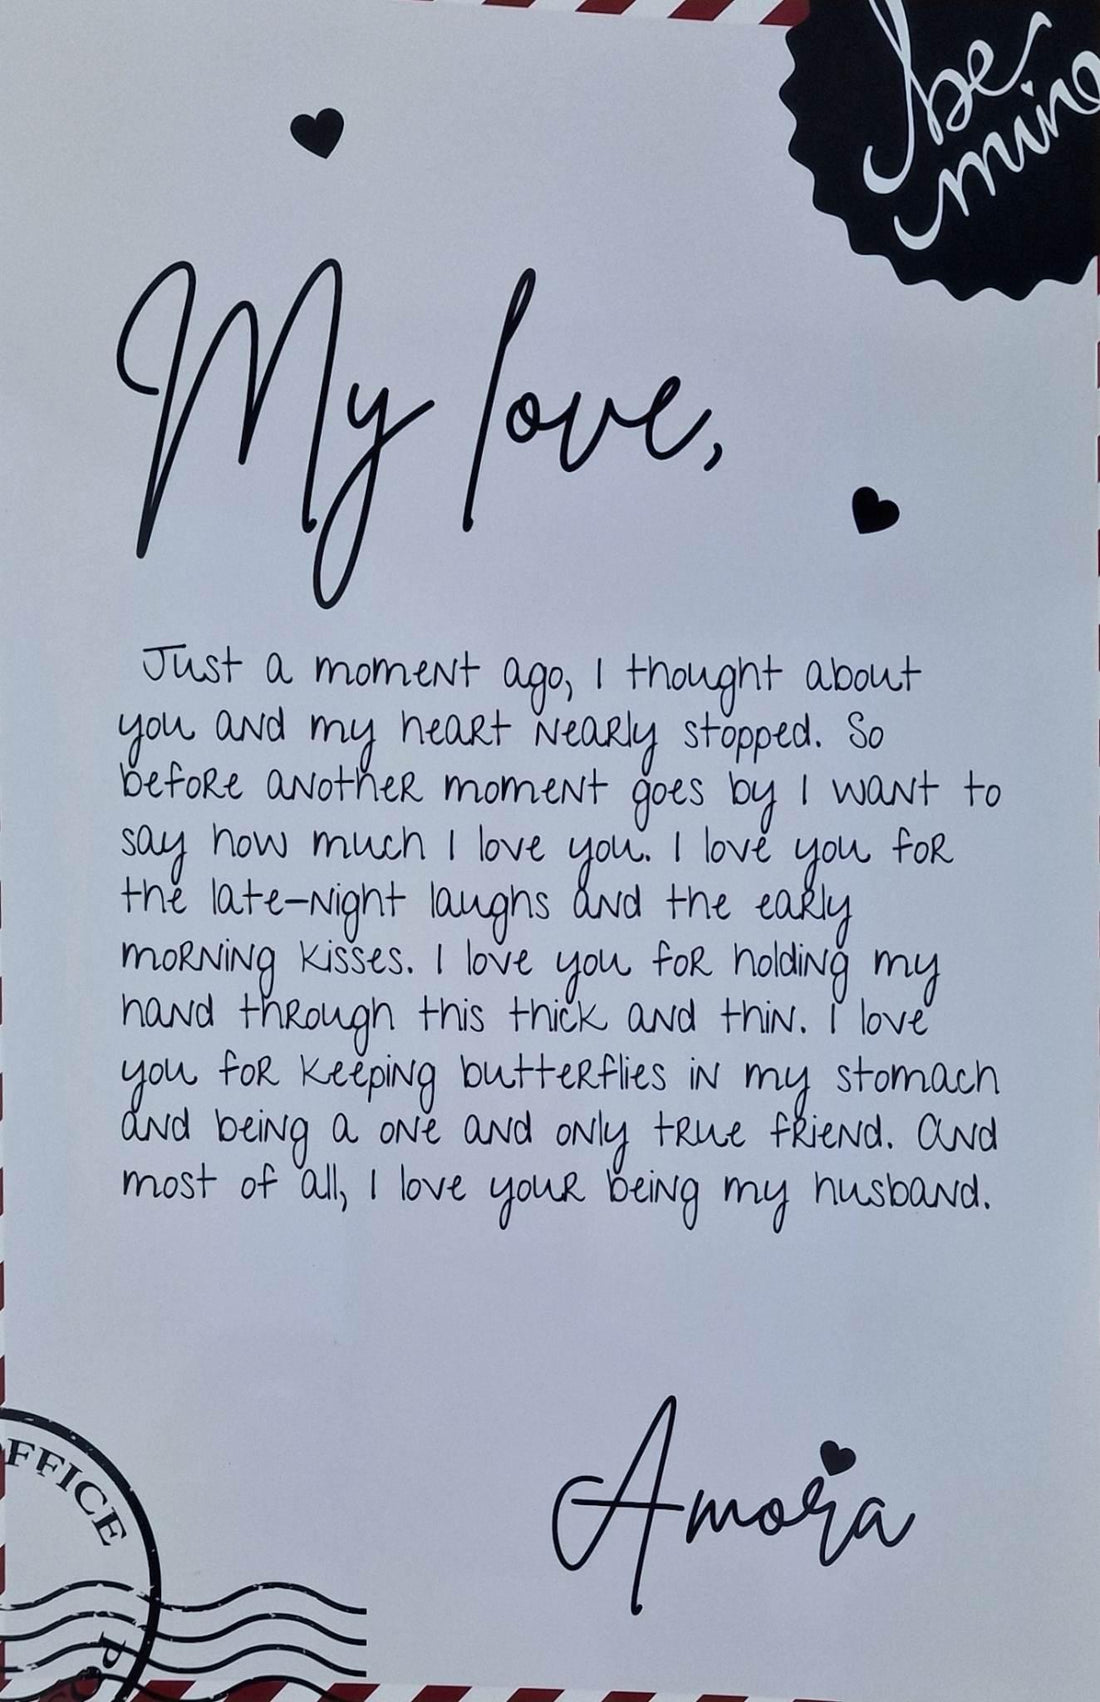 be
mine
My love,
Just a moment ago, I thought about
you and my heart nearly stopped. So
before another moment goes by I want to
say how much I love you. I love you for
the late-night laughs and the early
morning kisses. I love you for holding my
hand through this thick and thin. I love
you for keeping butterflies in my stomach
and being a one and only true friend. And
most of all, I love your being my husband.
Amora
FFICE